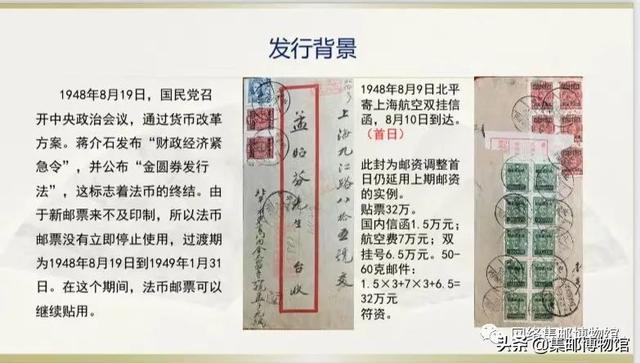 发行背景
1948年8月19日，国民党召
开中央政治会议，通过货币改革
方案。蒋介石发布“财政经济紧
急令”，并公布“金圆券发行
法”，这标志着法币的终结。由
于新邮票来不及印制，所以法币
邮票没有立即停止使用，过渡期
为1948年8月19日到1949年1月31
日。在这个期间，法币邮票可以
继续贴用。
上海九江路八拾五號
益昭芬先生 台收
1948年8月9日北平
寄上海航空双挂信
函，8月10日到达。
（首日）
此封为邮资调整首
日仍延用上期邮资
的实例。
贴票32万。
国内信函1.5万元；
航空费7万元；双
挂号6.5万元。50-
60克邮件：
1.5×3+7×3+6.5=
32万元
符资。
网络集邮博物馆
头条@集邮博物馆